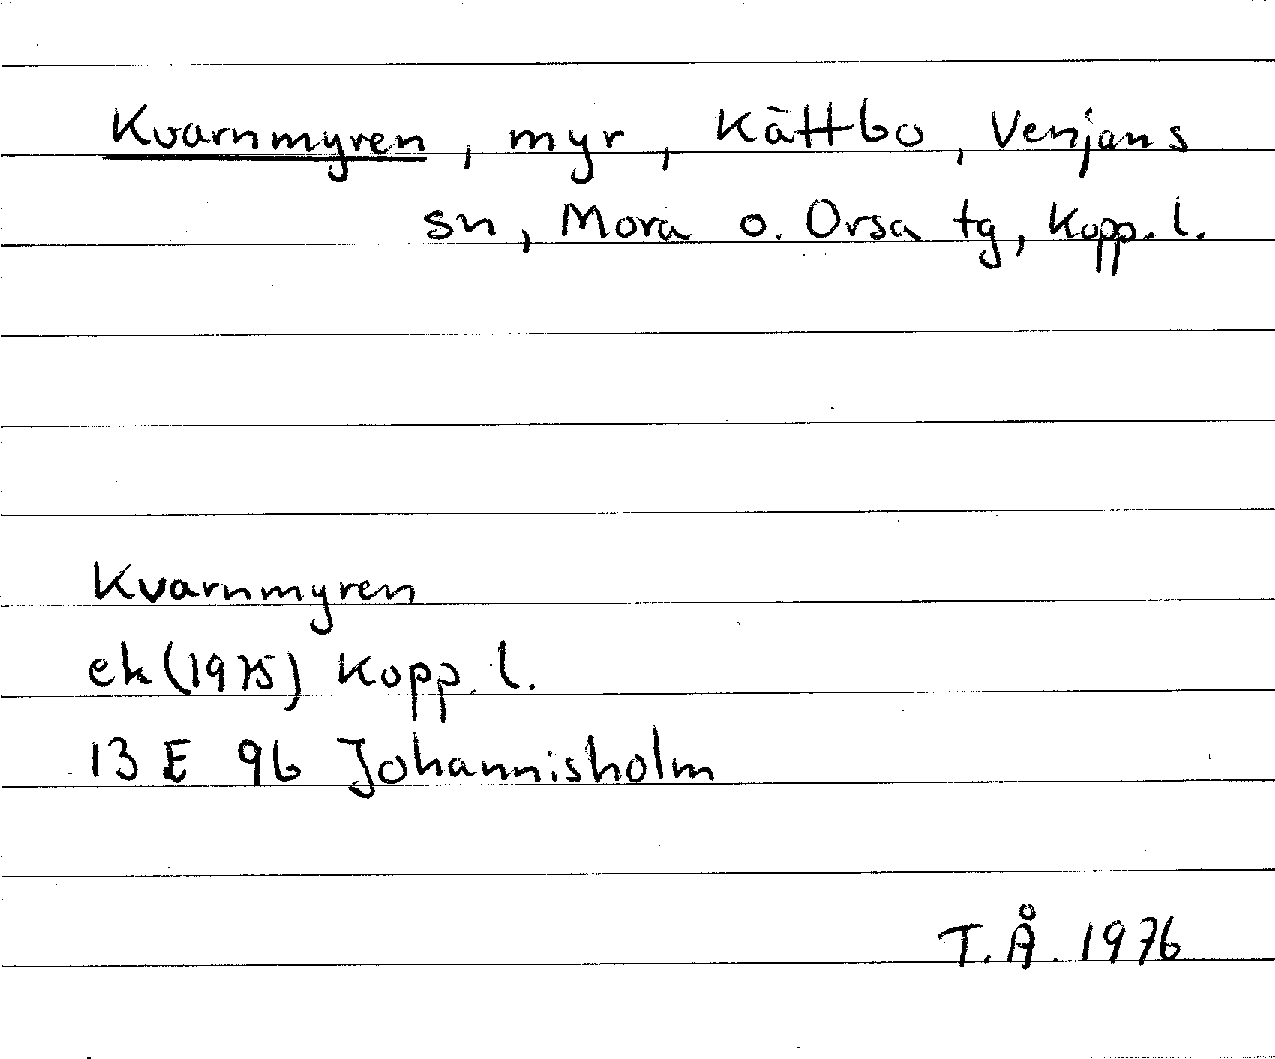 Kvarnmyren, myr, Kättbo, Venjans
sn, Mora o. Orsa tg, Kopp. l.
Kvarnmyren
ek (1975) Kopp. l.
13 E 9b Johannisholm
T.Å. 1976